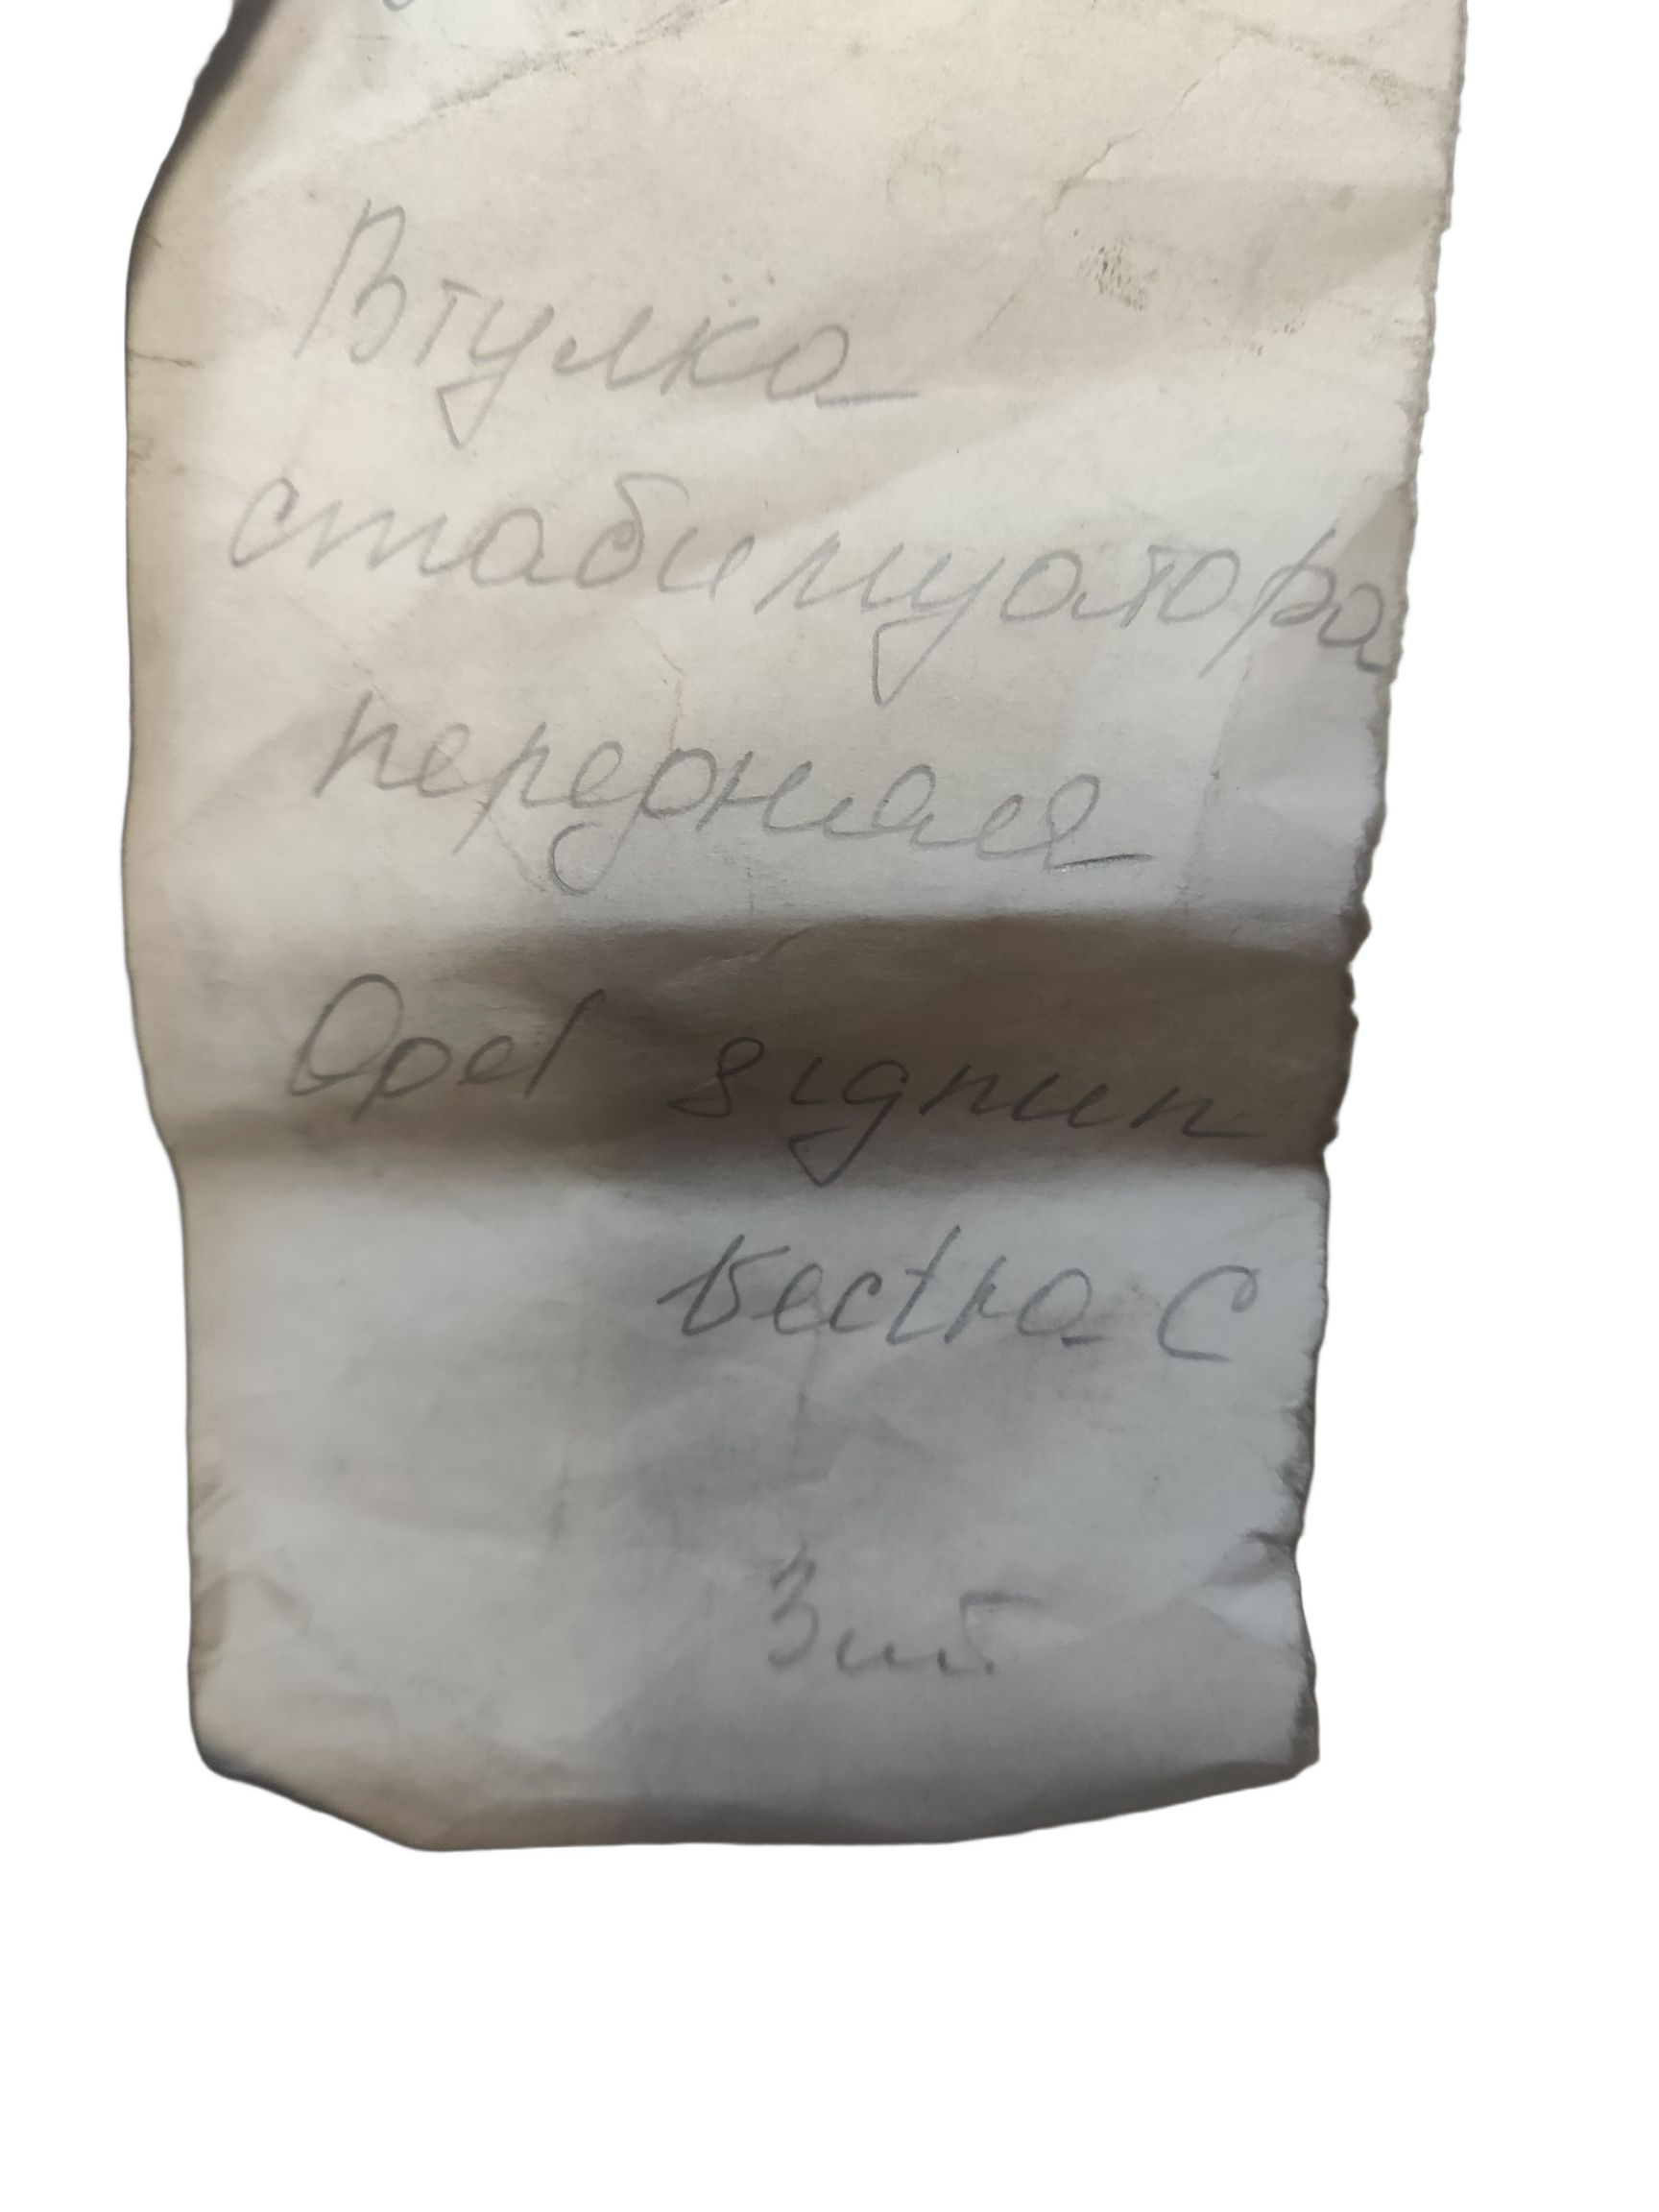 Втулка
стабилизатора
передняя
Opel signum
Vectra C
3 шт